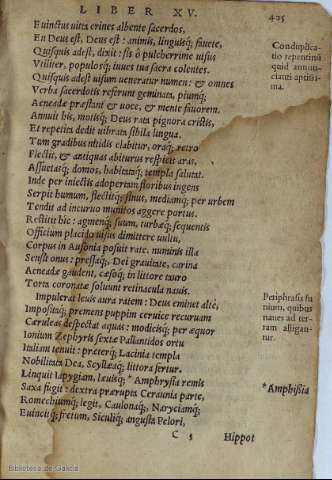 LIBER XV.
405
Euinctus uitta crines albente sacerdos,
En Deus est, Deus est: animis, linguisq; fauete,
Quisquis adest, dixit: sis ô pulcherrime uisus
Vtiliter, populosq́; iuues tua sacra colentes.
Quisquis adest uisum ueneratur numen: & omnes
Verba sacerdotis referunt geminata, piumq́;
Aeneadæ præstant & uoce, & mente fauorem.
Annuit his, motisq́; Deus rata pignora cristis,
Et repetita dedit uibrata sibila lingua.
Tum gradibus nitidis elabitur, oraq́; retro
Flectit, & antiquas abiturus respicit aras,
Assuetasq́; domos, habitataq́; templa salutat.
Inde per iniectis adopertam floribus ingens
Serpit humum, flectitq́; sinus, mediamq́; per urbem
Tendit ad incuruo munitos aggere portus.
Restitit hic: agmenq́; suum, turbæq́; sequentis
Officium placido uisus dimittere uultu,
Corpus in Ausonia posuit rate. numinis illa
Sensit onus: pressaq́;, Dei grauitate, carina
Aeneadæ gaudent, cæsoq́; in littore tauro
Torta coronatæ soluunt retinacula nauis.
Impulerat leuis aura ratem: Deus eminet altè,
Impositaq́; premens puppim ceruice recuruam
Cæruleas despectat aquas: modicisq́; per æquor
Ionium Zephyris sexto Pallantidos ortu
Italiam tenuit: præterq́; Lacinia templa
Nobilitata Dea, Scyllæaq́; littora fertur.
Linquit Iapygiam, læuisq́; * Amphrysia remis
Saxa fugit: dextra prærupta Ceraunia parte,
Romechiumq́; legit, Caulonaq́;, Naryciamq́;
Euincitq́; fretum, Siculiq́; angusta Pelori,
C 5
Hippot
Condūplica-
tio repentinū
quid annun-
cianti aptissi-
ma.
Periphrasis fu
nium, quibus
naues ad ter-
ram alligan-
tur.
*Amphißia
Biblioteca de Galicia